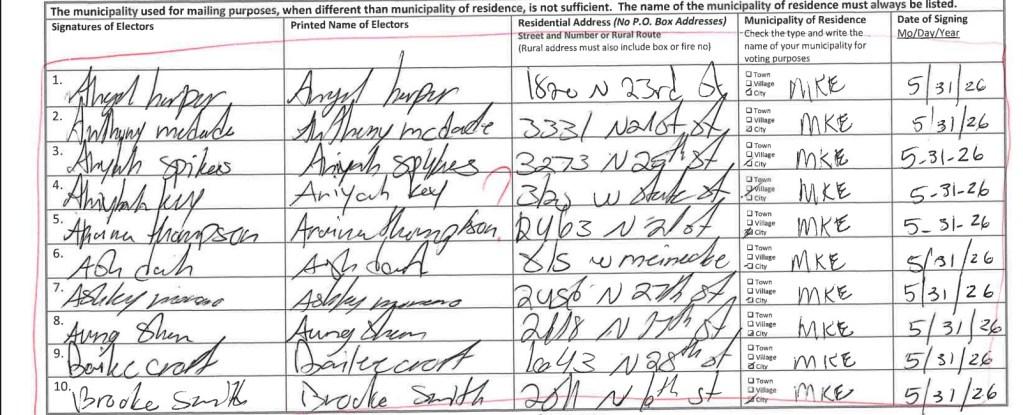 The municipality used for mailing purposes, when different than municipality of residence, is not sufficient. The name of the municipality of residence must always be listed.
Signatures of Electors Printed Name of Electors Residential Address (No P.O. Box Addresses) Municipality of Residence Date of Signing
Street and Number or Rural Route Check the type and write the Mo/Day/Year
(Rural address must also include box or fire no) name of your municipality for
voting purposes
1. Angel harper Angel harper 1820 N 23rd St Town Village City MKE 5/31/26
2. Anthony mcdade Anthony mcdade 3331 N 21st St Town Village City MKE 5/31/26
3. Aniyah spikers Aniyah 3273 N 25th St Town Village City MKE 5-31-26
4. Aniyah key Aniyah key ? W State St Town Village City MKE 5-31-26
5. thompson 2463 N 21st Town Village City MKE 5-31-26
6. Ash dah Ash dah 815 w meinecke Town Village City MKE 5/31/26
7. Ashley moreno Ashley moreno 2456 N 27th St Town Village City MKE 5/31/26
8. Aung Shen Aung 2118 N St Town Village City MKE 5/31/26
9. croft croft 1643 N 28th st Town Village City MKE 5/31/26
10. Brooke Smith Brooke Smith N 6th st Town Village City MKE 5/31/26